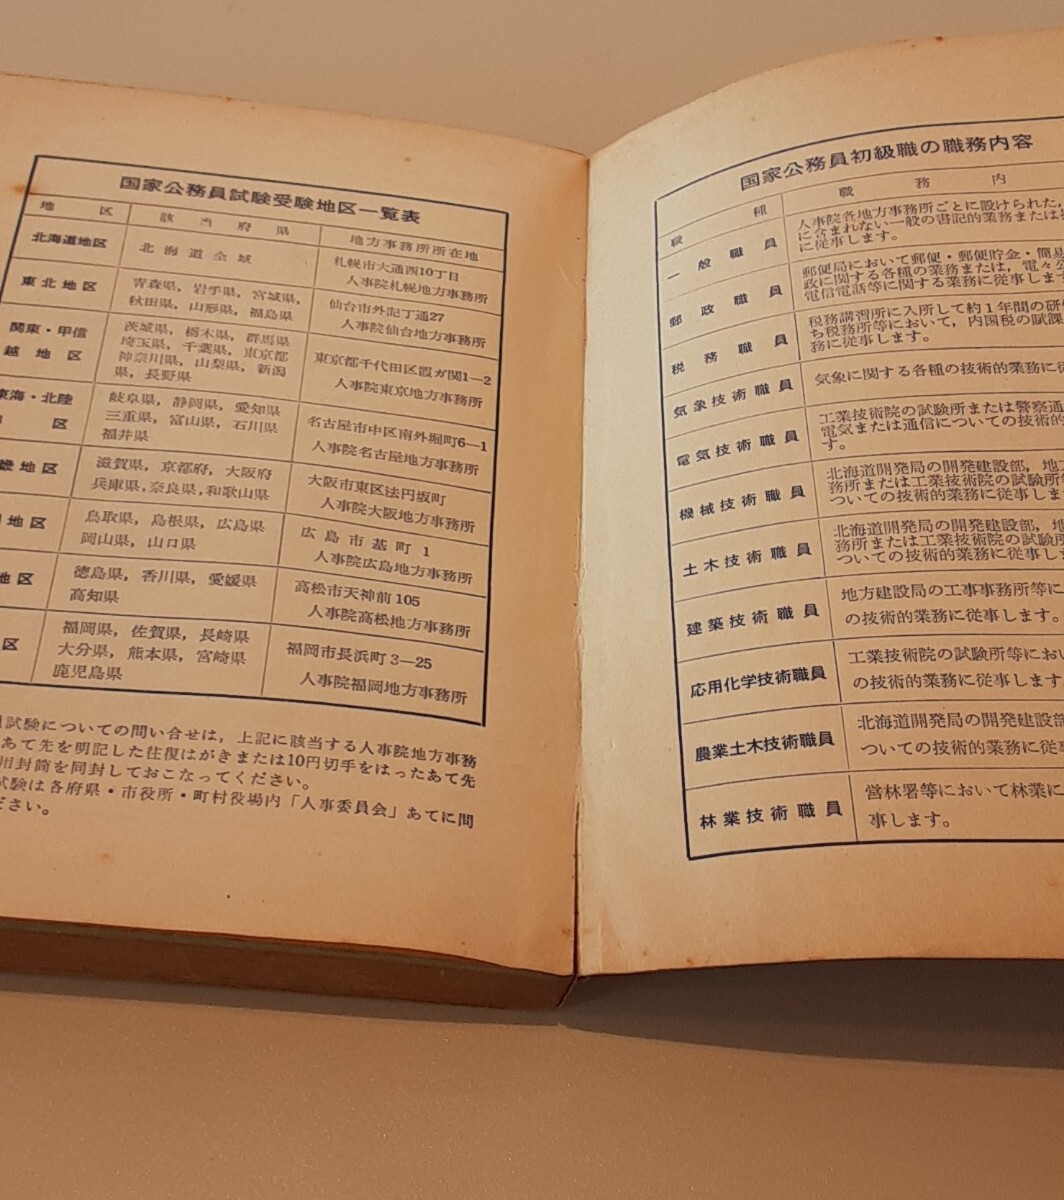 国家公務員試験受験地区一覧表
地区 該当府県 地方事務所所在地
北海道地区 北海道全域 札幌市大通西10丁目
人事院札幌地方事務所
東北地区 青森県，岩手県，宮城県，
秋田県，山形県，福島県
仙台市外記丁通27
人事院仙台地方事務所
関東・甲信
越地区
茨城県，栃木県，群馬県
埼玉県，千葉県，東京都
神奈川県，山梨県，新潟
県，長野県
東京都千代田区霞ガ関1―2
人事院東京地方事務所
東海・北陸
区
岐阜県，静岡県，愛知県
三重県，富山県，石川県
福井県
名古屋市中区南外堀町6―1
人事院名古屋地方事務所
畿地区
滋賀県，京都府，大阪府
兵庫県，奈良県，和歌山県
大阪市東区法円坂町
人事院大阪地方事務所
地区
鳥取県，島根県，広島県
岡山県，山口県
広島市基町1
人事院広島地方事務所
地区
徳島県，香川県，愛媛県
高知県
高松市天神前105
人事院高松地方事務所
区
福岡県，佐賀県，長崎県
大分県，熊本県，宮崎県
鹿児島県
福岡市長浜町3―25
人事院福岡地方事務所
試験についての問い合せは，上記に該当する人事院地方事務
あて先を明記した往復はがきまたは10円切手をはったあて先
用封筒を同封しておこなってください。
試験は各府県・市役所・町村役場内「人事委員会」あてに問
ださい。
国家公務員初級職の職務内容
職種 職務内
一般職員
人事院各地方事務所ごとに設けられた，
に含まれない一般の書記的業務または
に従事します。
郵政職員
郵便局において郵便・郵便貯金・簡易
政に関する各種の業務または，電々公
電信電話等に関する業務に従事します
税務職員
税務講習所に入所して約1年間の研
ち税務所等において，内国税の賦課
務に従事します。
気象技術職員
気象に関する各種の技術的業務に従
電気技術職員
工業技術院の試験所または警察通
電気または通信についての技術的
す。
機械技術職員
北海道開発局の開発建設部，地
務所または工業技術院の試験所
ついての技術的業務に従事しま
土木技術職員
北海道開発局の開発建設部，地
務所または工業技術院の試験所
ついての技術的業務に従事しま
建築技術職員
地方建設局の工事事務所等に
の技術的業務に従事します。
応用化学技術職員
工業技術院の試験所等におい
の技術的業務に従事します。
農業土木技術職員
北海道開発局の開発建設部
ついての技術的業務に従事
林業技術職員
営林署等において林業に
事します。